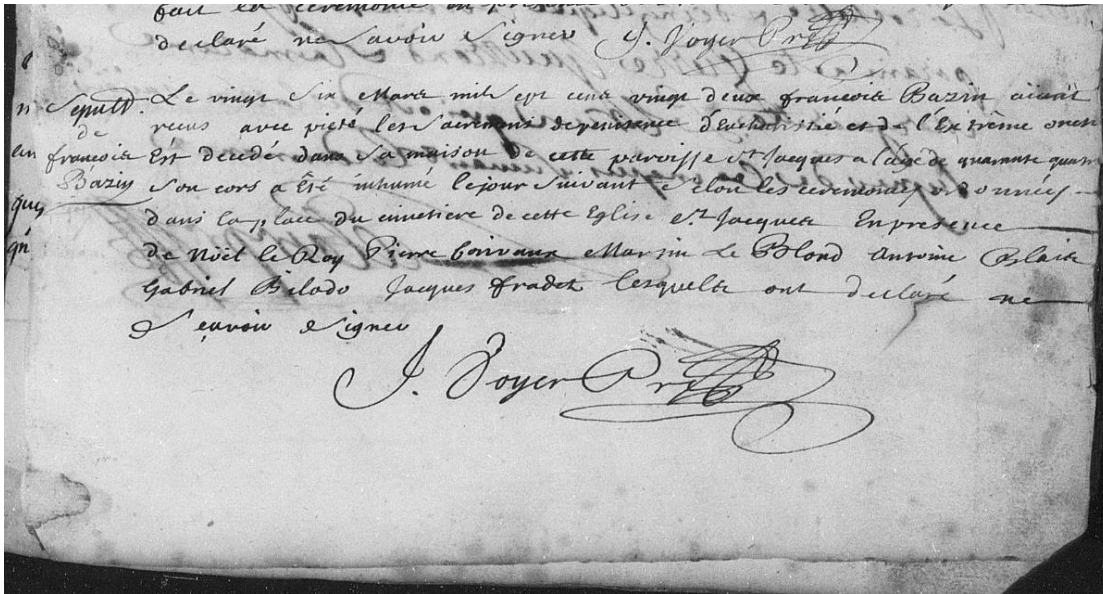 fait la ceremonie en
declaré ne Savoir Signer J. Voyer Pre
Sepult.
de
francois
Bazin
Le vingt Six Mars mil sept cens vingt deux francois Bazin aiant
recus avec pieté les Sacremens de penitence d'Eucharistie et de l'Extrême onct
Est decedé dans Sa maison de cette paroisse St Jacques a l'age de quarante quatre
Son cors a Été inhumé le jour suivant Selon les ceremonies ordonnées
dans la place du cimetiere de cette Eglise St Jacques En presence
de Noël le Roy Pierre Corivaux Martin Le Blond Antoine Blais
Gabriel Bilodo Jacques fradet lesquels ont declaré ne
Sçavoir Signer
J. Voyer Pre